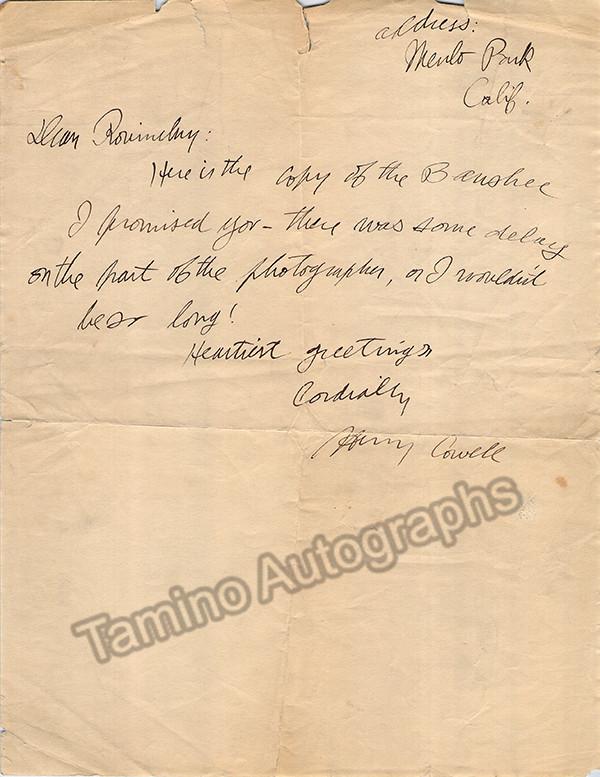 address:
Menlo Park
Calif.
Dear :
Here is the copy of the Banshee
I promised you - there was some delay
on the part of the photographer, or I wouldn't
be so long!
Heartiest greetings
Cordially
Henry Cowell
Tamino Autographs